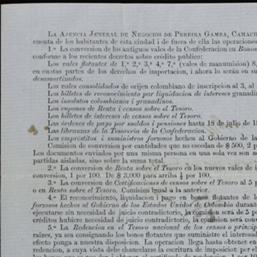 LA AGENCIA JENERAL DE NEGOCIOS DE PEREIRA GAMBA, CAMACH
cuenta de los habitantes de esta ciudad i de fuera de ella las operaciones
1.ª La conversion de los antiguos vales de la Confederacion en
conforme a los recientes decretos sobre crédito público:
Los vales flotantes de 1.ª, 2.ª, 3.ª, 4.ª, 7.ª (vales de manumision), 8.ª
en cuotas partes de los derechos de importacion, i ahora lo serán en su
Los vales consolidados de oríjen colombiano de inscripcion al 3, al
Los billetes de reconocimiento por liquidacion de intereses granadin
Los insolutos colombianos i granadinos.
Los cupones de Renta sobre el Tesoro.
Los billetes de intereses de censos sobre el Tesoro.
Las órdenes de pago por sueldos i pensiones hasta 18 de julio de 18
Las libranzas de la Tesorería de la Confederacion.
Los empréstitos i suministros forzosos hechos al Gobierno de la
Comision de conversion por cantidades que no escedan de $ 500, 2 p
Los documentos enviados por una misma persona en una sola vez son
partidas aisladas, sino sobre la suma total.
2.ª La conversion de Renta sobre el Tesoro en los nuevos vales de
conversion, 1 por 100. De $ 2,000 para arriba ½ por 100.
3.ª La conversion de Certificaciones de censos sobre el Tesoro al 5 p
o en Renta sobre el Tesoro. Comision igual a la anterior.
4.ª El reconocimiento, liquidacion i pago en bonos flotantes de
forzosos hechos al Gobierno de los Estados Unidos de Colombia durante
ejecutarse sin necesidad de juicio contradictorio, la comision será de 5 po
créditos hubiere necesidad de juicio contradictorio, la comision será conv
5.ª La Redencion en el Tesoro nacional de los censos o princip
raices, ya sea consignando los bonos flotantes que suministrare el interesado
efecto ponga a nuestra disposicion. La operacion llega hasta obtener en
redencion, a cuya vista debe chancelarse la escritura de imposicion por el